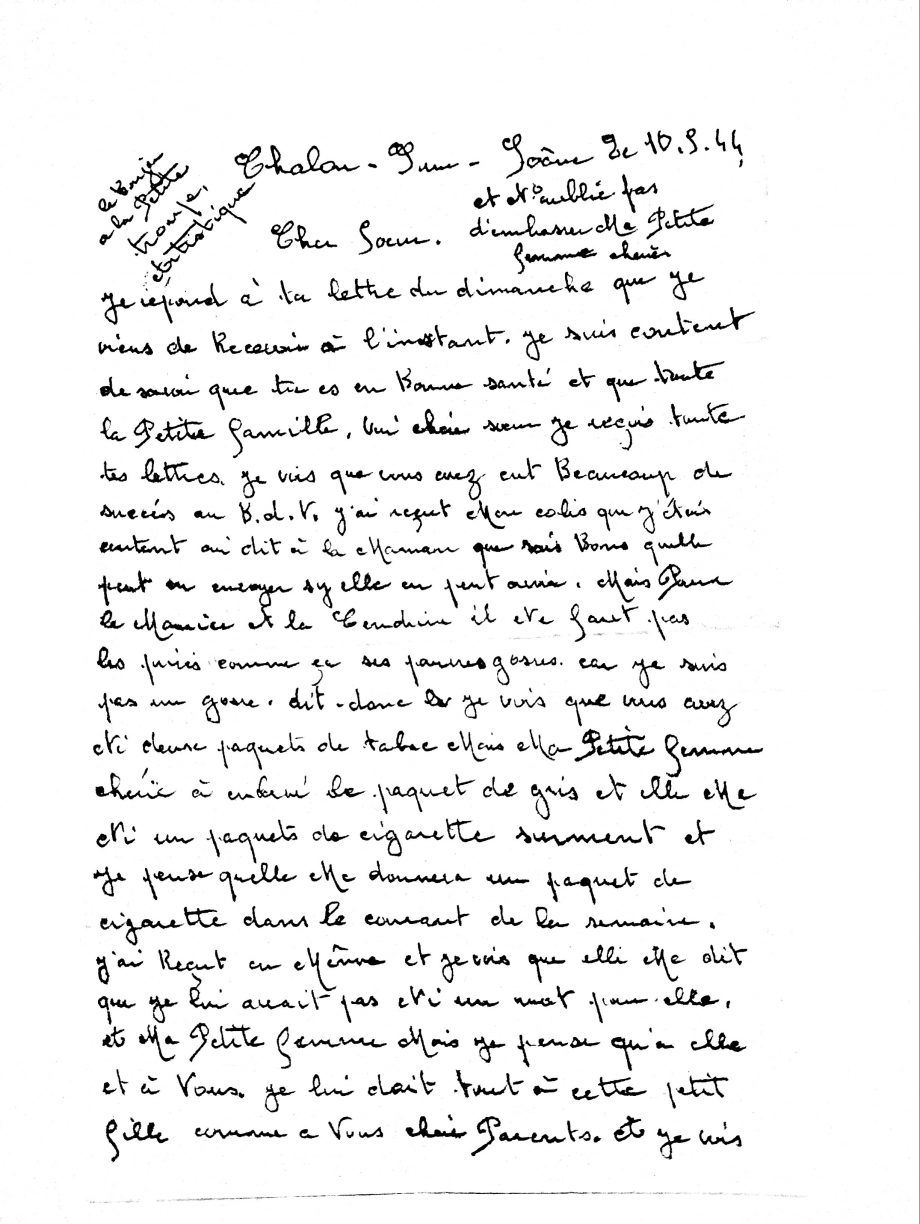 le Bonjour
a la Petite
troupe,
artistique
Chalon-Sur-Saône le 10.5.44
et N'oublié pas
d'embrasser Ma Petite
femme cheriè
Cher Soeur.
je répond à ta lettre du dimanche que je
viens de Recevoir à l'instant. je suis content
de savoir que tu es en Bonne santé et que toute
la Petite famille, oui cherie soeur je reçois toute
tes lettres. je vois que vous avez eut Beaucoup de
succès au B.d.V. j'ai reçut Mon colis que j'étais
content oui dit à la Maman que sais Bons quelle
peut en envoyer sy elle en peut avoir. Mais Pour
le Maurice et la il Ne faut pas
les comme ça ses pauvres gosses. car je suis
pas un gosse. dit-donc je vois que vous avez
Mi deux paquets de tabac Mais Ma Petite femme
cheriè à enlevé le paquet de gris et elle Me
Mi un paquets de cigarette surment et
je pense quelle Me donnera un paquet de
cigarette dans le courant de la semaine.
j'ai Reçut en Même et je vois que elle Me dit
que je lui avait pas Mi un mot pour elle,
et Ma Petite femme Mais je pense qu'a elle
et à Vous. je lui doit tout à cette petit
fille comme a Vous cherie Parents. et je vois